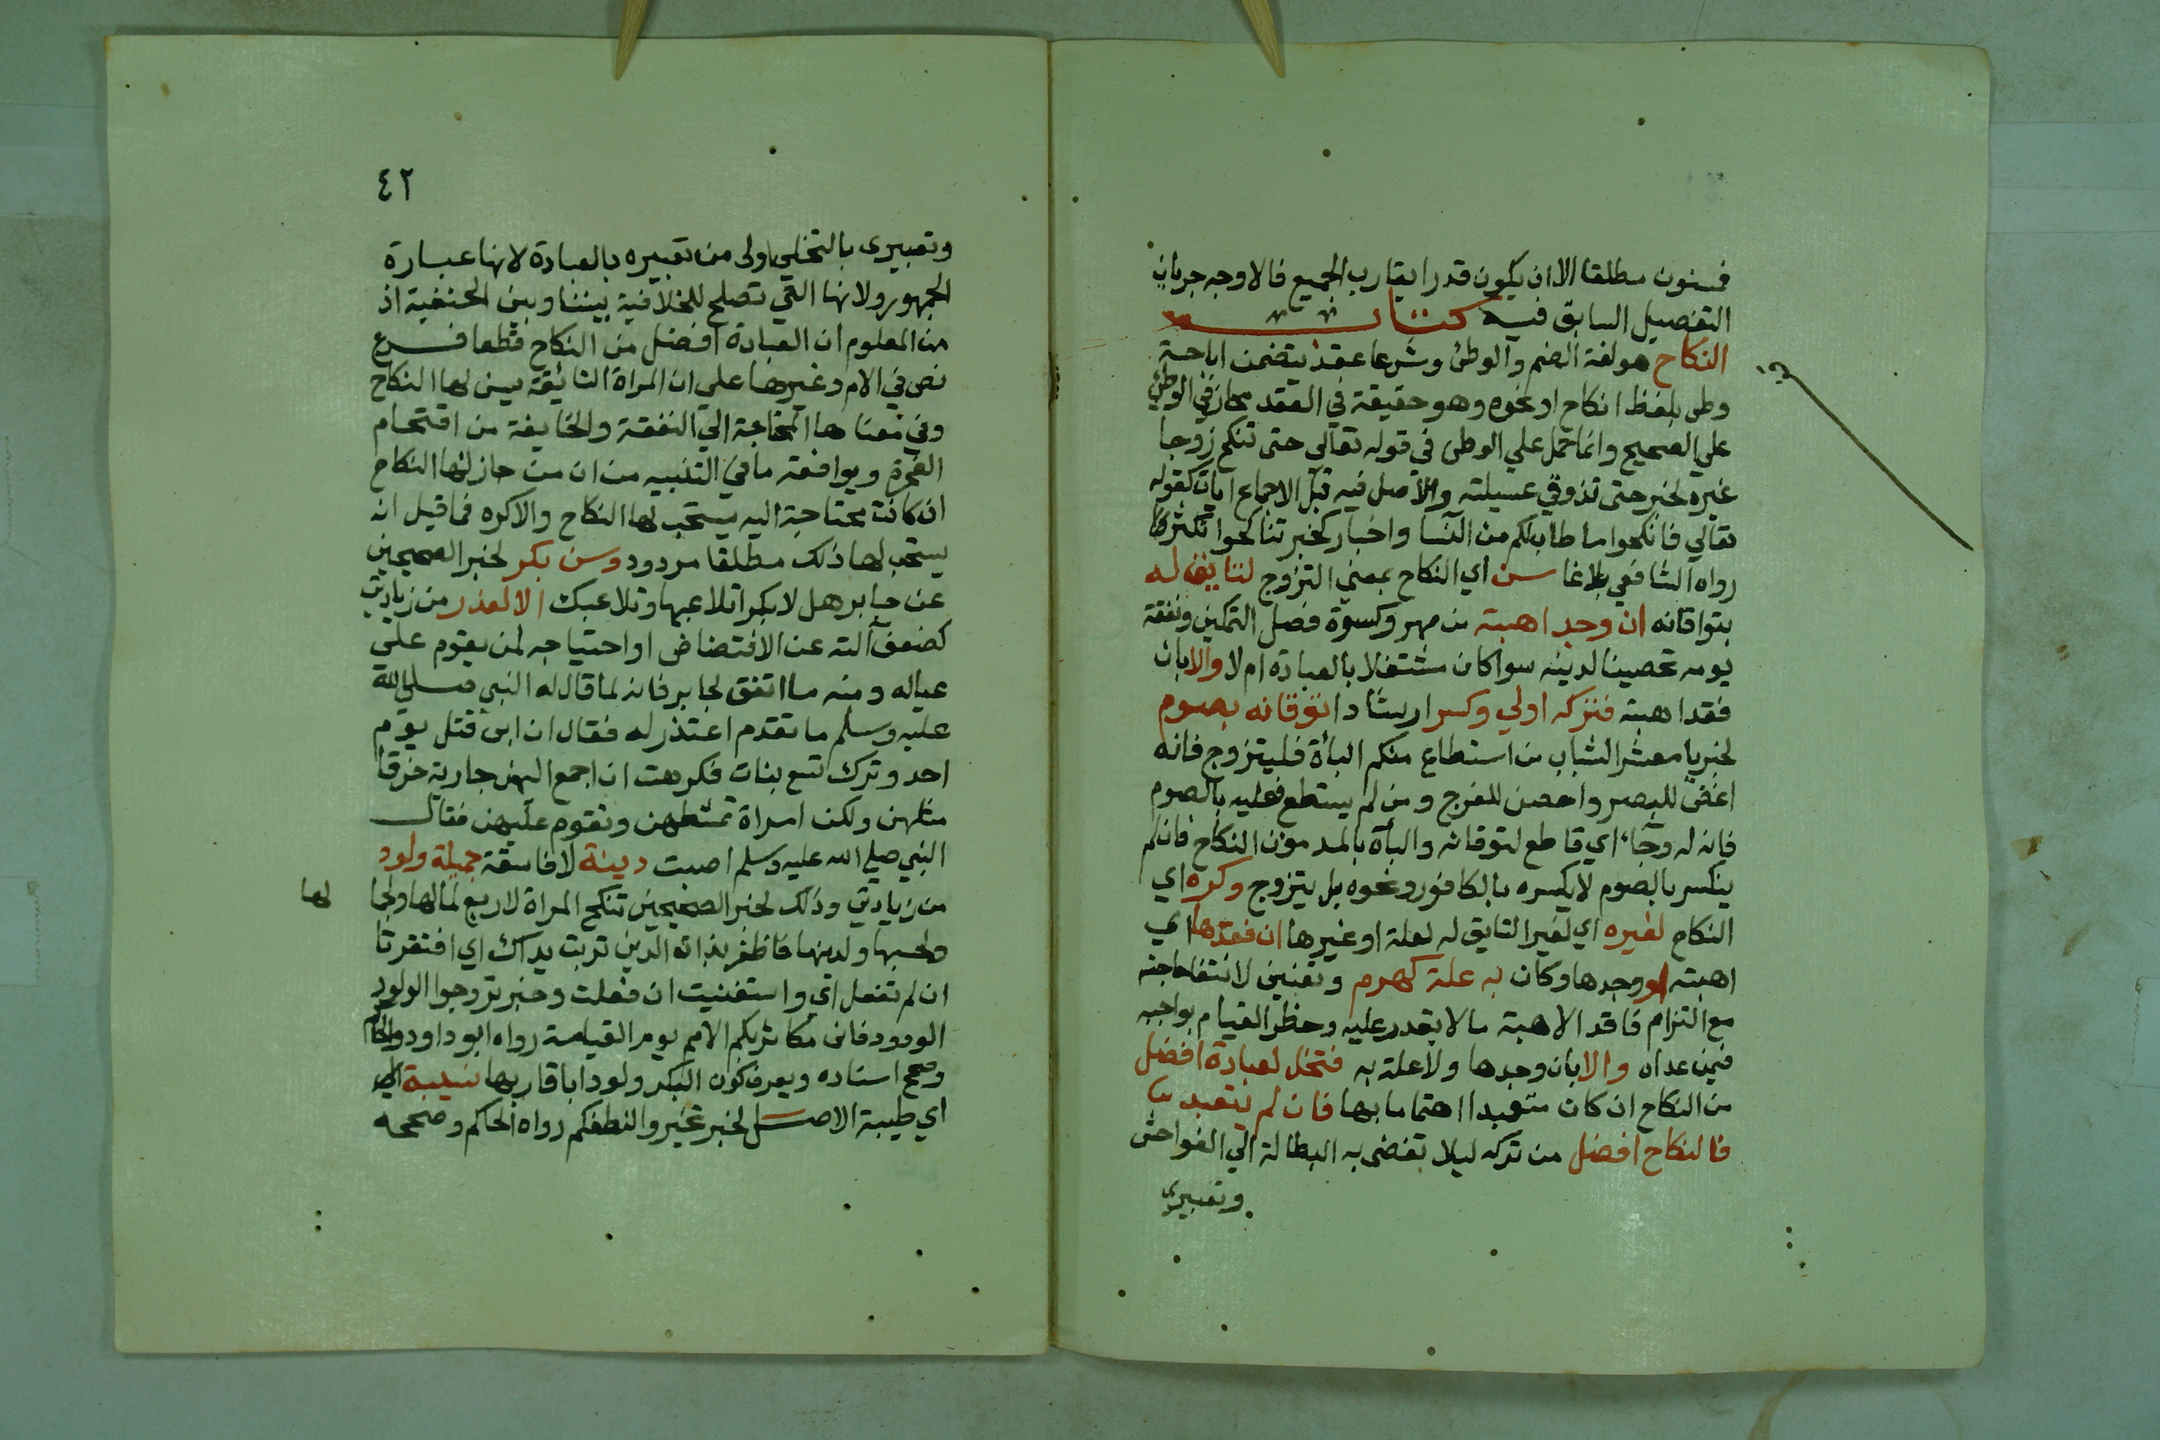 فمسنون مطلقا الا ان يكون قدرا يقارب الجميع فالاوجه جريان
التفصيل السابق فيه كتاب
النكاح هو لغة الضم والوطئ وشرعا عقد يتضمن اباحة
وطى بلفظ انكاح او نحوه وهو حقيقة في العقد مجاز في الوطئ
علي الصحيح وانما حمل علي الوطى في قوله تعالي حتى تنكح زوجا
غيره لخبر حتى تذوقي عسيلته والاصل فيه قبل الاجماع ايات كقوله
تعالي فانكحوا ما طاب لكم من النسا واخبار كخبر تناكحوا تكثروا
رواه الشافعي بلاغا سن اي النكاح بمعني التزوج لتايق له
بتواقانه ان وجد اهبته من مهر وكسوة فصل التمكين ونفقة
يومه تحصينا لدينه سوا كان مشتغلا بالعبادة ام لا والا بان
فقد اهبته فتركه اولي وكسر ارشادا توقانه بصوم
لخبر يا معشر الشباب من استطاع منكم الباة فليتزوج فانه
اغض للبصر واحصن للفرج ومن لم يستطع فعليه بالصوم
فانه له وجاء اي قاطع لتوقانه والباة بالمد مون النكاح فان لم
ينكسر بالصوم لا يكسره بالكافور ونحوه بل يتزوج وكره اي
النكاح لغيره اي لغير التايق له لعلة او غيرها ان فقدها اي
اهبته او وجدها وكان به علة كهرم وتعنين لانتفا حاجته
مع التزام فاقد الاهبة ما لا يقدر عليه وخطر القيام بواجبه
فيمن عداه والا بان وجدها ولا علة به فتخل لعبادة افضل
من النكاح ان كان متعبدا اهتماما بها فان لم يتعبد
فالنكاح افضل من تركه ليلا تفضى به البطالة الي الفواحش
وتعبيري
٤٢
وتعبيرى بالتخلي اولى من تعبيره بالعبادة لانها عبارة
الجمهور ولانها التي تصلح للخلافية بيننا وبين الحنفية اذ
من المعلوم ان العبادة افضل من النكاح قطعا فرع
نص في الام وغيرها على ان المراة التائقة يسن لها النكاح
وفي معناها المحتاجة الي النفقة والخايفة من اقتحام
الفجرة ويوافقه ما في التنبيه من ان من جاز لها النكاح
ان كانت محتاجة اليه يستحب لها النكاح والاكره فما قيل انه
يستحب لها ذلك مطلقا مردود وسن بكر لخبر الصحيحين
عن جابر هل لا بكرا تلاعبها وتلاعبك الا لعذر من زيادتي
كضعف آلته عن الافتضاض او احتياجه لمن يقوم على
عياله ومنه ما اتفق لجابر فانه لما قال له النبي صلي الله
عليه وسلم ما تقدم اعتذر له فقال ان ابى قتل يوم
احد وترك تسع بنات فكرهت ان اجمع اليهن جارية خرقا
مثلهن ولكن امراة تمشطهن وتقوم عليهن فقال
النبي صلي الله عليه وسلم اصبت دينة لا فاسقة جميلة ولود
من زيادتي وذلك لخبر الصحيحين تنكح المراة لاربع لمالها ولجما
لها
ولحسبها ولدينها فاظفر بذات الدين تربت يداك اي افتقرتا
ان لم تفعل اي واستغنيت ان فعلت وخبر تزوجوا الولود
الودود فانى مكاثر بكم الامم يوم القيامة رواه ابو داود والحاكم
وصحح اسناده ويعرف كون البكر ولودا باقاربها نسيبة
اي طيبة الاصل لخبر تخيروا لنطفكم رواه الحاكم وصححه